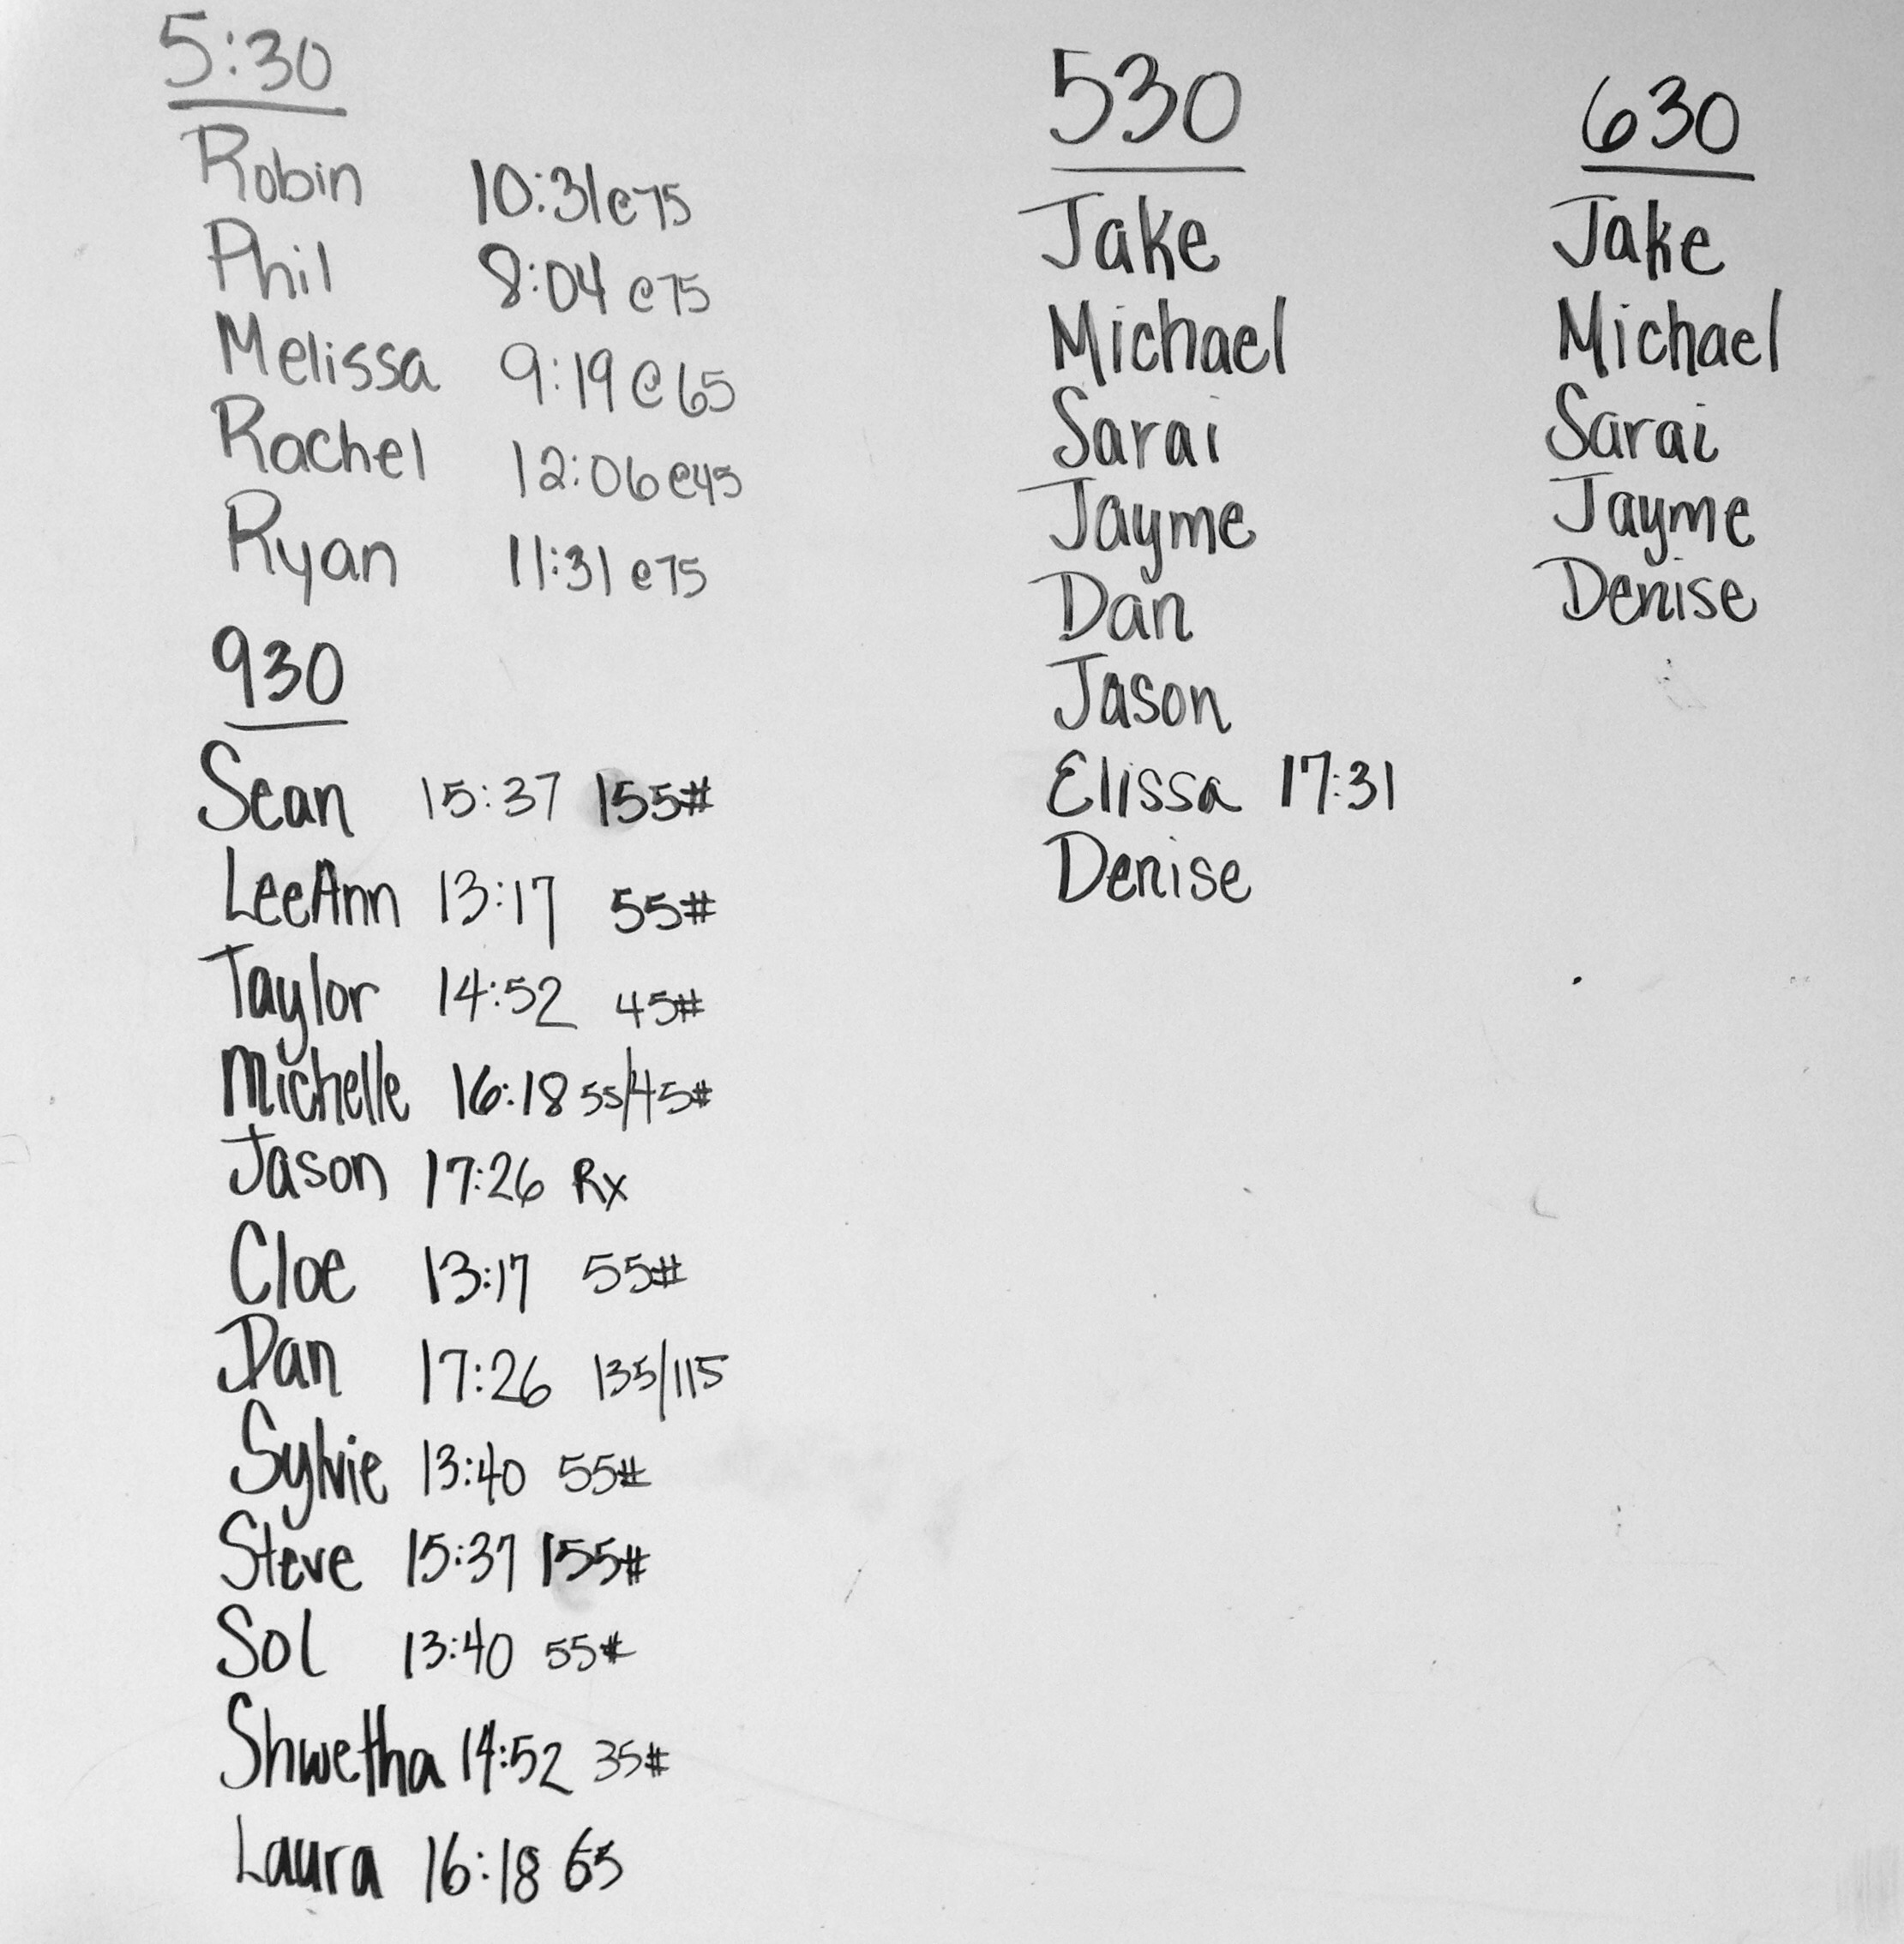 5:30
Robin 10:31@75
Phil 8:04 @75
Melissa 9:19 @ 65
Rachel 12:06 @45
Ryan 11:31 @75
930
Sean 15:37 155#
LeeAnn 13:17 55#
Taylor 14:52 45#
Michelle 16:18 55/45#
Jason 17:26 Rx
Cloe 13:17 55#
Dan 17:26 135/115
Sylvie 13:40 55#
Steve 15:37 155#
Sol 13:40 55#
Shwetha 14:52 35#
Laura 16:18 65
530
Jake
Michael
Sarai
Jayme
Dan
Jason
Elissa 17:31
Denise
630
Jake
Michael
Sarai
Jayme
Denise